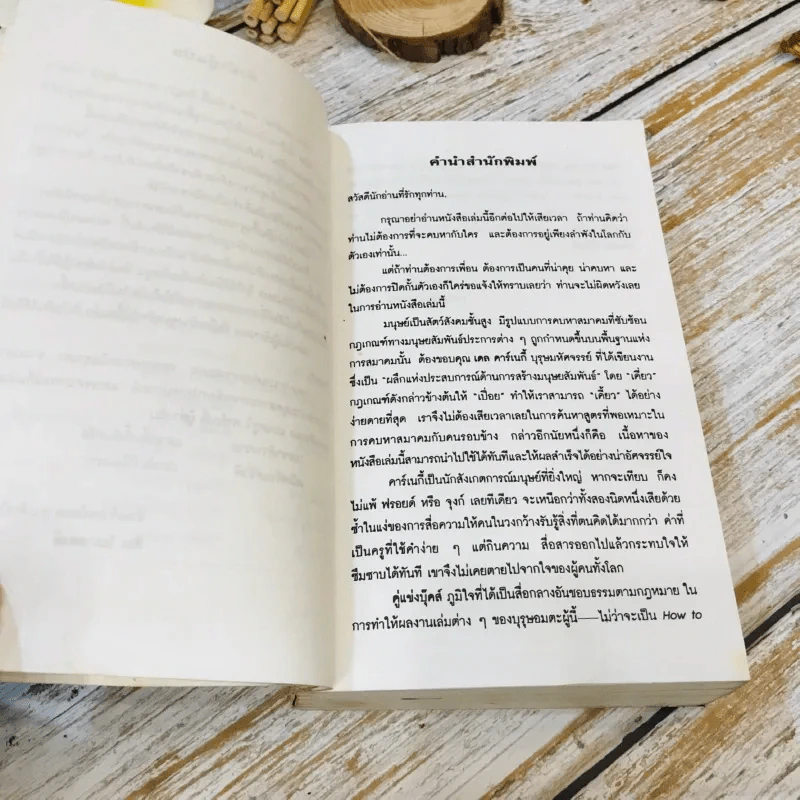 คำนำสำนักพิมพ์
สวัสดีนักอ่านที่รักทุกท่าน,
กรุณาอย่าอ่านหนังสือเล่มนี้อีกต่อไปให้เสียเวลา ถ้าท่านคิดว่า
ท่านไม่ต้องการที่จะคบหากับใคร และต้องการอยู่เพียงลำพังในโลกกับ
ตัวเองเท่านั้น...
แต่ถ้าท่านต้องการเพื่อน ต้องการเป็นคนที่น่าคุย น่าคบหา และ
ไม่ต้องการปิดกั้นตัวเองก็ใคร่ขอแจ้งให้ทราบเลยว่า ท่านจะไม่ผิดหวังเลย
ในการอ่านหนังสือเล่มนี้
มนุษย์เป็นสัตว์สังคมชั้นสูง มีรูปแบบการคบหาสมาคมที่ซับซ้อน
กฎเกณฑ์ทางมนุษยสัมพันธ์ประการต่าง ๆ ถูกกำหนดขึ้นบนพื้นฐานแห่ง
การสมาคมนั้น ต้องขอบคุณ เดล คาร์เนกี้ บุรุษมหัศจรรย์ ที่ได้เขียนงาน
ซึ่งเป็น "ผลึกแห่งประสบการณ์ด้านการสร้างมนุษยสัมพันธ์" โดย "เคี่ยว"
กฎเกณฑ์ดังกล่าวข้างต้นให้ "เปื่อย" ทำให้เราสามารถ "เคี้ยว" ได้อย่าง
ง่ายดายที่สุด เราจึงไม่ต้องเสียเวลาเลยในการค้นหาสูตรที่พอเหมาะใน
การคบหาสมาคมกับคนรอบข้าง กล่าวอีกนัยหนึ่งก็คือ เนื้อหาของ
หนังสือเล่มนี้สามารถนำไปใช้ได้ทันทีและให้ผลสำเร็จได้อย่างน่าอัศจรรย์ใจ
คาร์เนกี้เป็นนักสังเกตการณ์มนุษย์ที่ยิ่งใหญ่ หากจะเทียบ ก็คง
ไม่แพ้ ฟรอยด์ หรือ จุงก์ เลยทีเดียว จะเหนือกว่าทั้งสองนิดหนึ่งเสียด้วย
ซ้ำในแง่ของการสื่อความให้คนในวงกว้างรับรู้สิ่งที่ตนคิดได้มากกว่า ค่าที่
เป็นครูที่ใช้คำง่าย ๆ แต่กินความ สื่อสารออกไปแล้วกระทบใจให้
ซึมซาบได้ทันที เขาจึงไม่เคยตายไปจากใจของผู้คนทั้งโลก
คู่แข่งบุ๊คส์ ภูมิใจที่ได้เป็นสื่อกลางอันชอบธรรมตามกฎหมาย ใน
การทำให้ผลงานเล่มต่าง ๆ ของบุรุษอมตะผู้นี้—ไม่ว่าจะเป็น How to